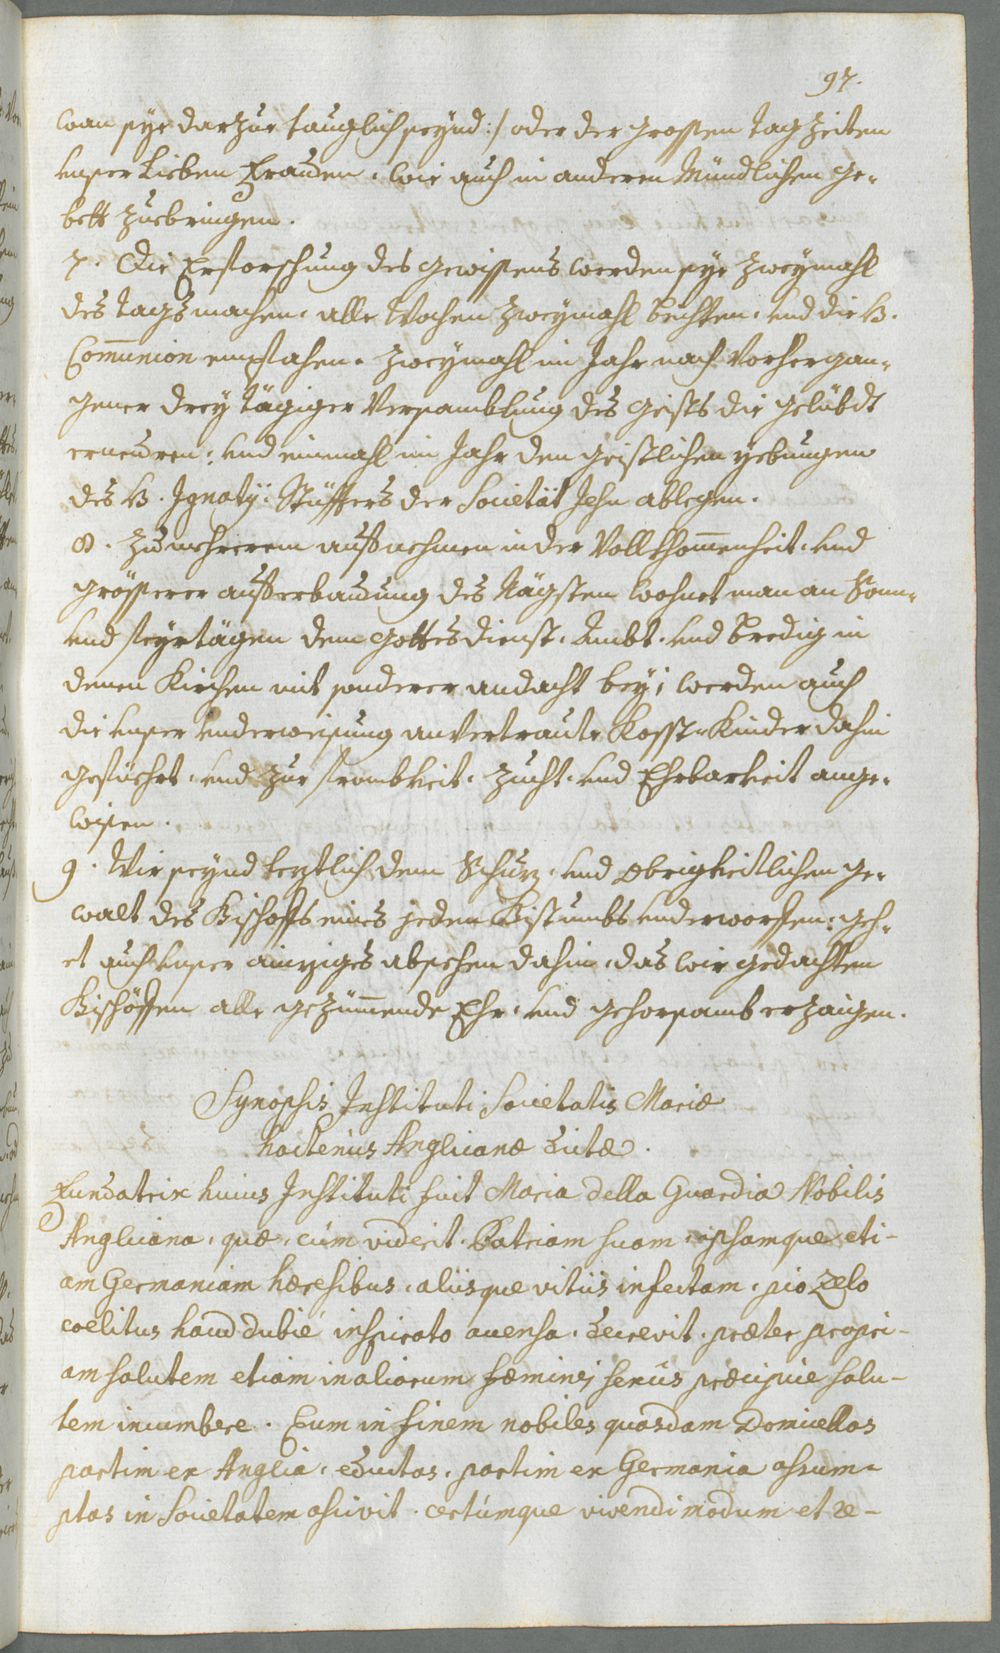 97.
wan sÿe darzue tauglich seynd :/ oder der grossen tagzeiten
unser lieben Frauen, wie auch in anderen Mündlichen ge-
bett zuebringen.
7. Die Erforschung des gewissens werden sÿe zweÿmahl
des tags machen, alle Wochen zweÿmahl beichten, und die H.
Com̄union empfahen. Zweÿmahl im Jahr nach vorhergan-
gener dreÿ tägiger Versamblung des geists die gelübdt
erneuren, und einmahl im Jahr den geistlichen yebungen
des H. Ignatÿ, Stüffters der Societät Jesu ablegen.
8. Zu mehrerem aufnehmen in der Vollkhom̄enheit, und
grösserer aufferbauung des Nägsten wohnet man an Sonn-
und feyrtägen dem Gottesdienst, Ambt, und Predig in
denen Kirchen mit sonderer andacht beÿ; werden auch
die unser underweisung anvertraute Kosst-Kinder dahin
gefüehrt, und zur frombkeit, zucht, und Ehrbarkeit ange-
wisen.
9. Wir seynd letztlich dem Schutz, und obrigkeitlichen ge-
walt des Bischoffs eines jeden Bistumbs underworffen: geh-
et auch unser ainziges absehen dahin, das wir gedachten
Bischöffen alle gezim̄ende Ehr, und gehorsamb erzaigen.
Synopsis Instituti Societatis Mariæ
hactenùs Anglicanæ dictæ.
Fundatrix huius Instituti fuit Maria della Guardia Nobilis
Anglicana, quæ, cùm viderit Patriam suam, ipsamque eti-
am Germaniam hæresibus, aliisque vitiis infectam, pio zelo
coelitus haud dubiè inspirato accensa, decrevit, præter propri-
am salutem etiam in aliorum fæminej sexûs præcipuè salu-
tem incumbere. Eum in finem nobiles quasdam Domicellas
partim ex Anglia, eductas, partim ex Germania assum-
ptas in Societatem ascivit, certúmque vivendi modum et re-